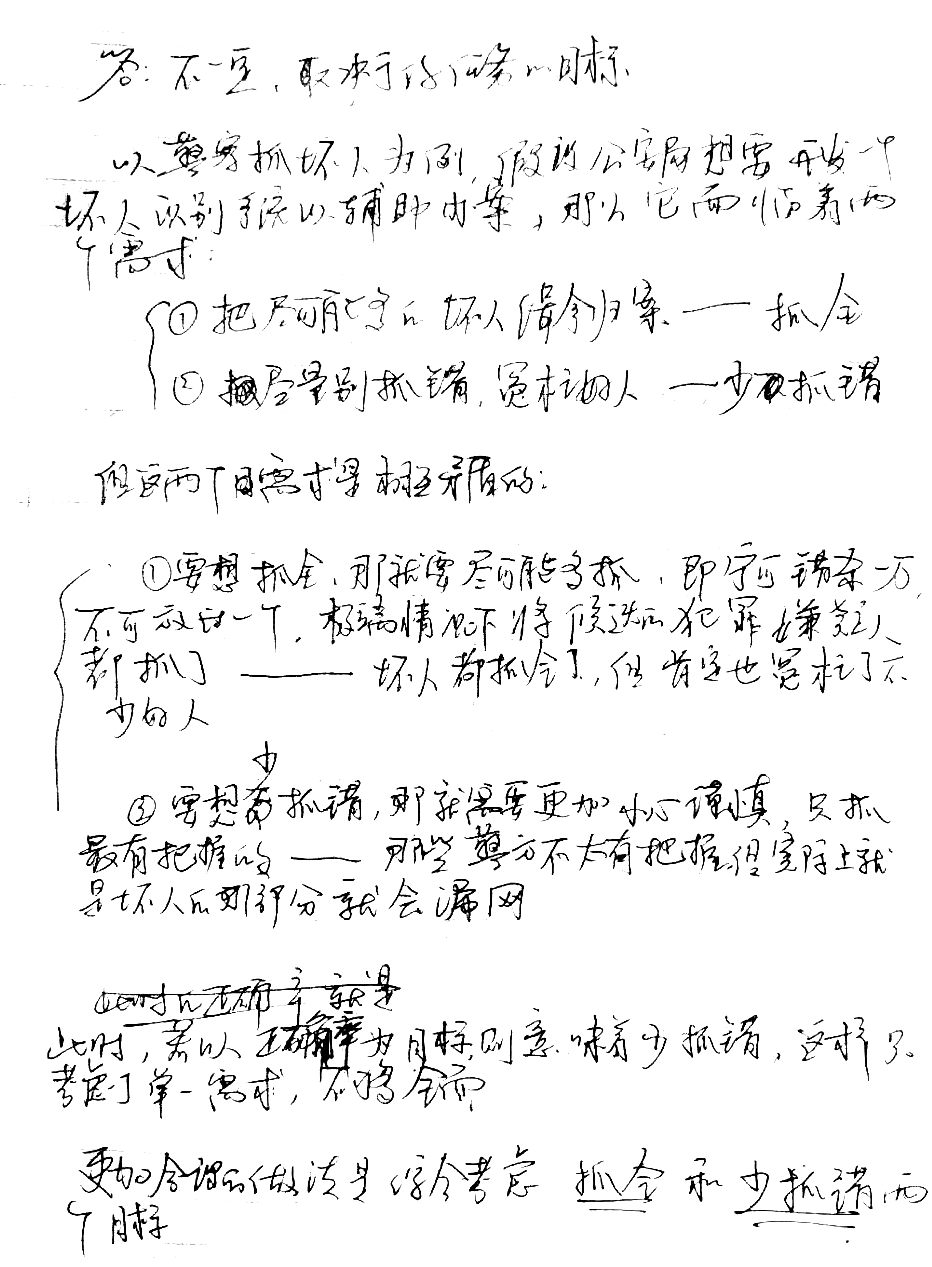 答：不一定，取决于你任务的目标
以警察抓坏人为例，假设公安局想要开发一个
坏人识别系统以辅助办案，那么它面临着两
个需求：
①把尽可能多的坏人缉拿归案 —— 抓全
②尽量别抓错，冤枉好人 —— 少抓错
但这两个需求是相互矛盾的：
①要想抓全，那就要尽可能多抓，即宁可错杀一万，
不可放过一个，极端情况下将候选的犯罪嫌疑人
都抓了 —— 坏人都抓全了，但肯定也冤枉了不
少好人
②要想少抓错，那就需要更加小心谨慎，只抓
最有把握的 —— 那些警方不太有把握但实际上就
是坏人的那部分就会漏网
此时的正确率就是
此时，若以正确率为目标则意味着少抓错，这样只
考虑了单一需求，不够全面
更加合理的做法是综合考虑 抓全 和 少抓错 两
个目标